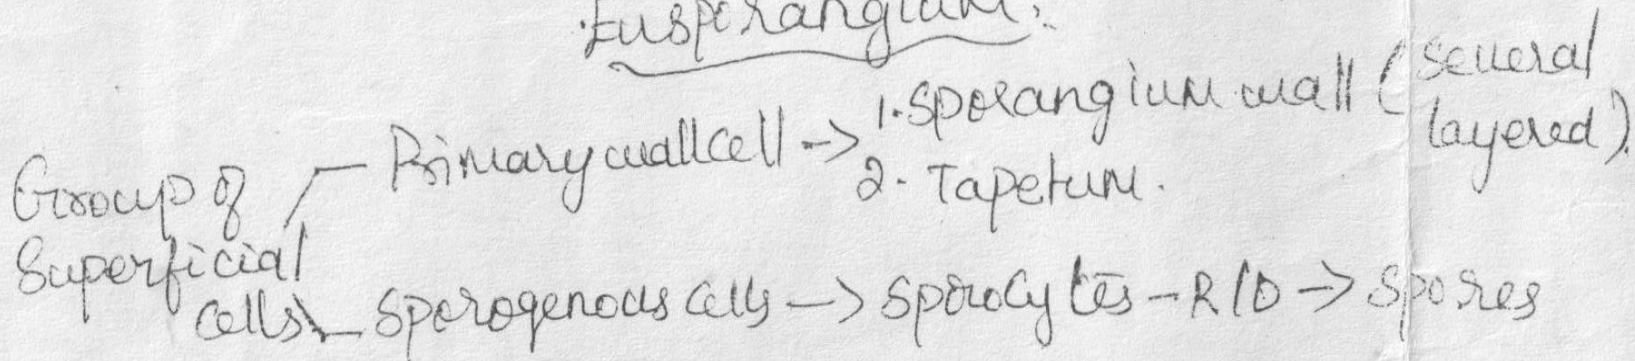 Eusporangium:
Group of
Superficial
cells
Primary wall cell -> 1. Sporangium wall (several
layered).
2. Tapetum.
Sporogenous cells -> Sporocytes - R/D -> Spores